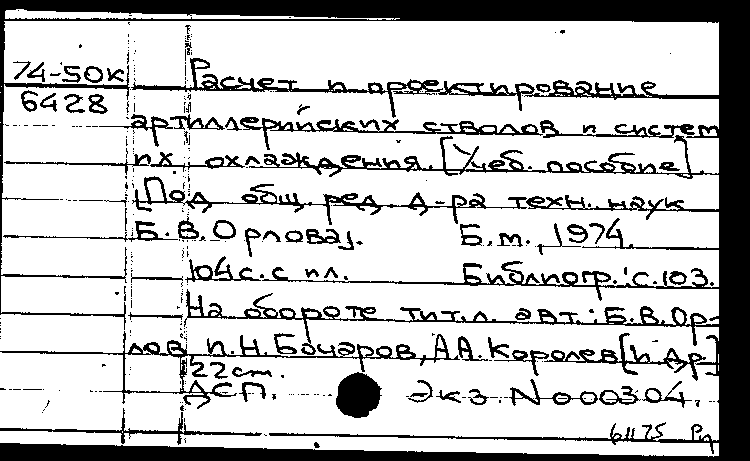 74-50к Расчет и проектирование
6428
артиллерийских стволов и систем
их охлаждения. [Учеб. пособие].
[Под общ. ред. д-ра техн. наук
Б.В.Орлова]. Б.м., 1974.
104с. с ил. Библиогр.: с.103.
На обороте тит.л. авт.: Б.В.Ор-
лов, И.Н.Бочаров, А.А.Королев [и др.]
22см.
ДСП. Экз. N 000304.
61175